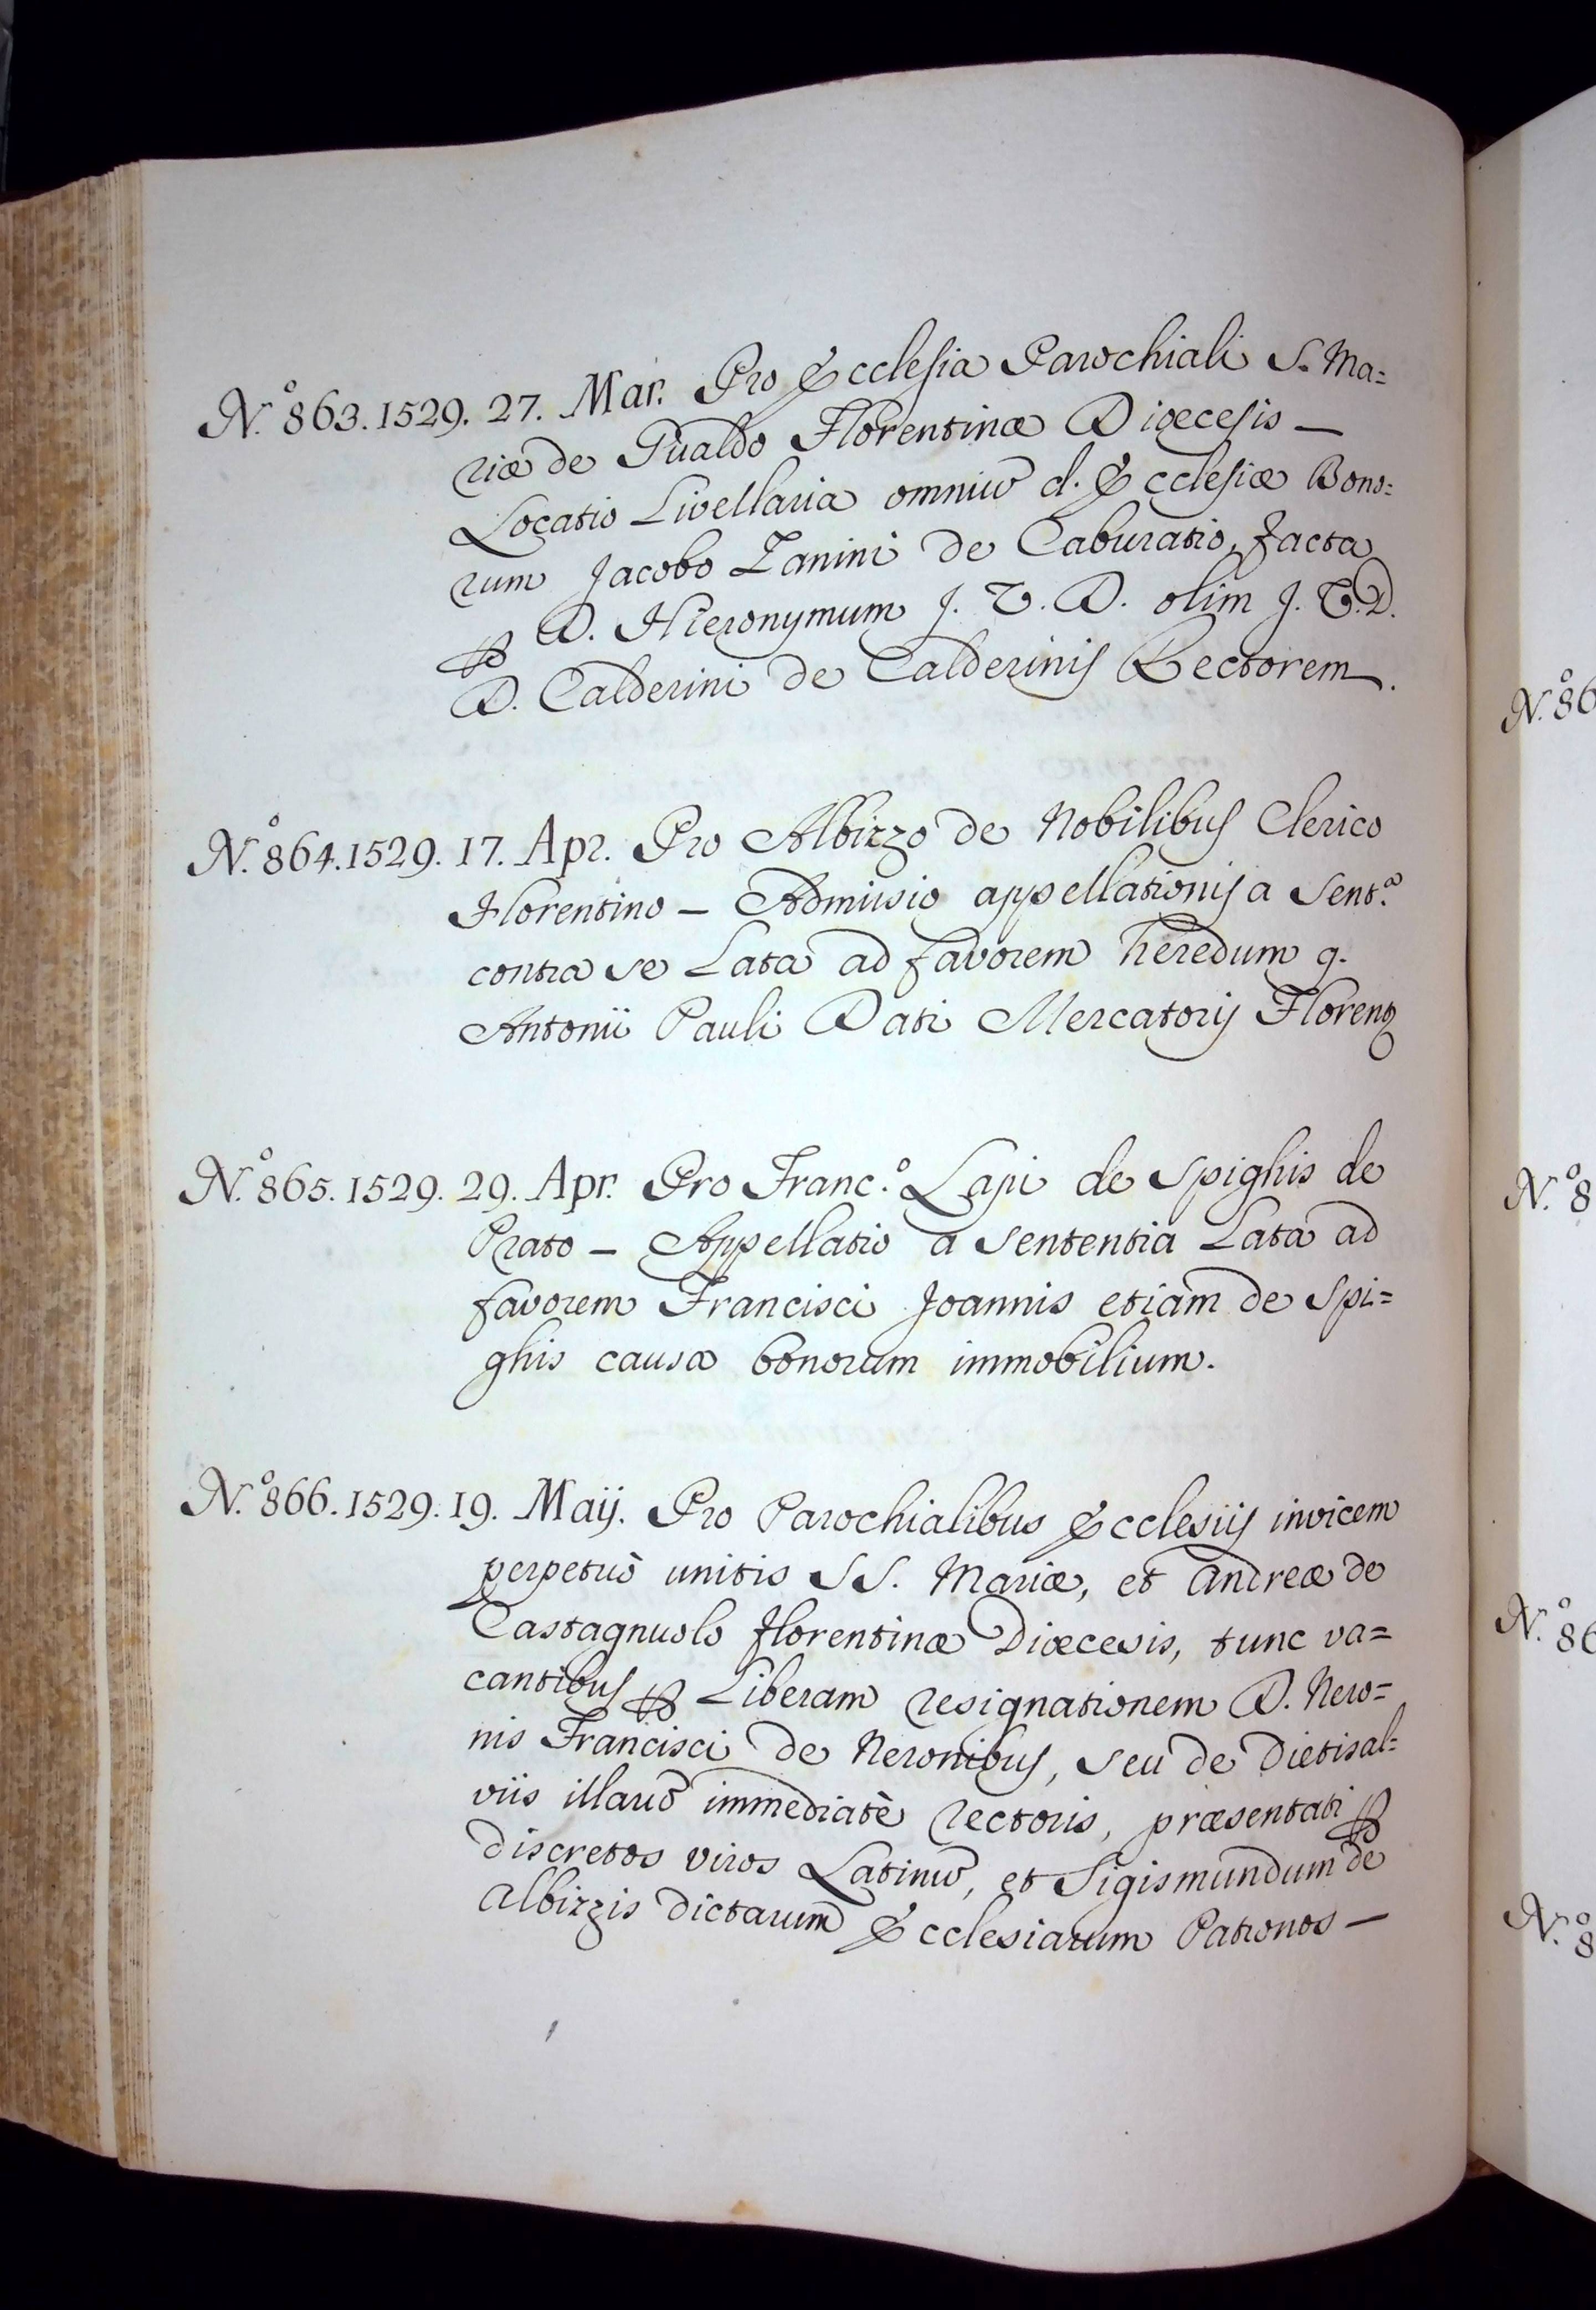 N.º 863. 1529. 27. Mar. Pro Ecclesia Parochiali S. Ma=
riæ de Gualdo Florentinæ Diœcesis —
Locatio Livellaria omniũ d. Ecclesiæ Bono=
rum Jacobo Zanini de Caburatio, facta
ꝑ D. Hieronymum J. U. D. olim J. U. D.
D. Calderini de Calderinis Rectorem.
N.º 864. 1529. 17. Apr. Pro Albizzo de Nobilibus Clerico
Florentino — Admissio appellationis a Sent.ª
contra se Lata ad favorem heredum q.
Antonii Pauli Dati Mercatoris Florenŋ
N.º 865. 1529. 29. Apr. Pro Franc.º Lapi de Spighis de
Prato — Appellatio a sententia Lata ad
favorem Francisci Joannis etiam de Spi=
ghis causa bonorum immobilium.
N.º 866. 1529. 19. Maij. Pro Parochialibus Ecclesiis invicem
perpetuò unitis SS. Mariæ, et Andreæ de
Castagnuolo Florentinæ Diœcesis, tunc va=
cantibus ꝑ Liberam resignationem D. Nero=
nis Francisci de Neronibus, seu de Dietisal=
viis illarũ immediatè rectoris, præsentati ꝑ
discretos viros Latinũ, et Sigismundum de
Albizzis dictarum Ecclesiarum Patronos —
N.º 86
N.º 8
N.º 86
N.º 8